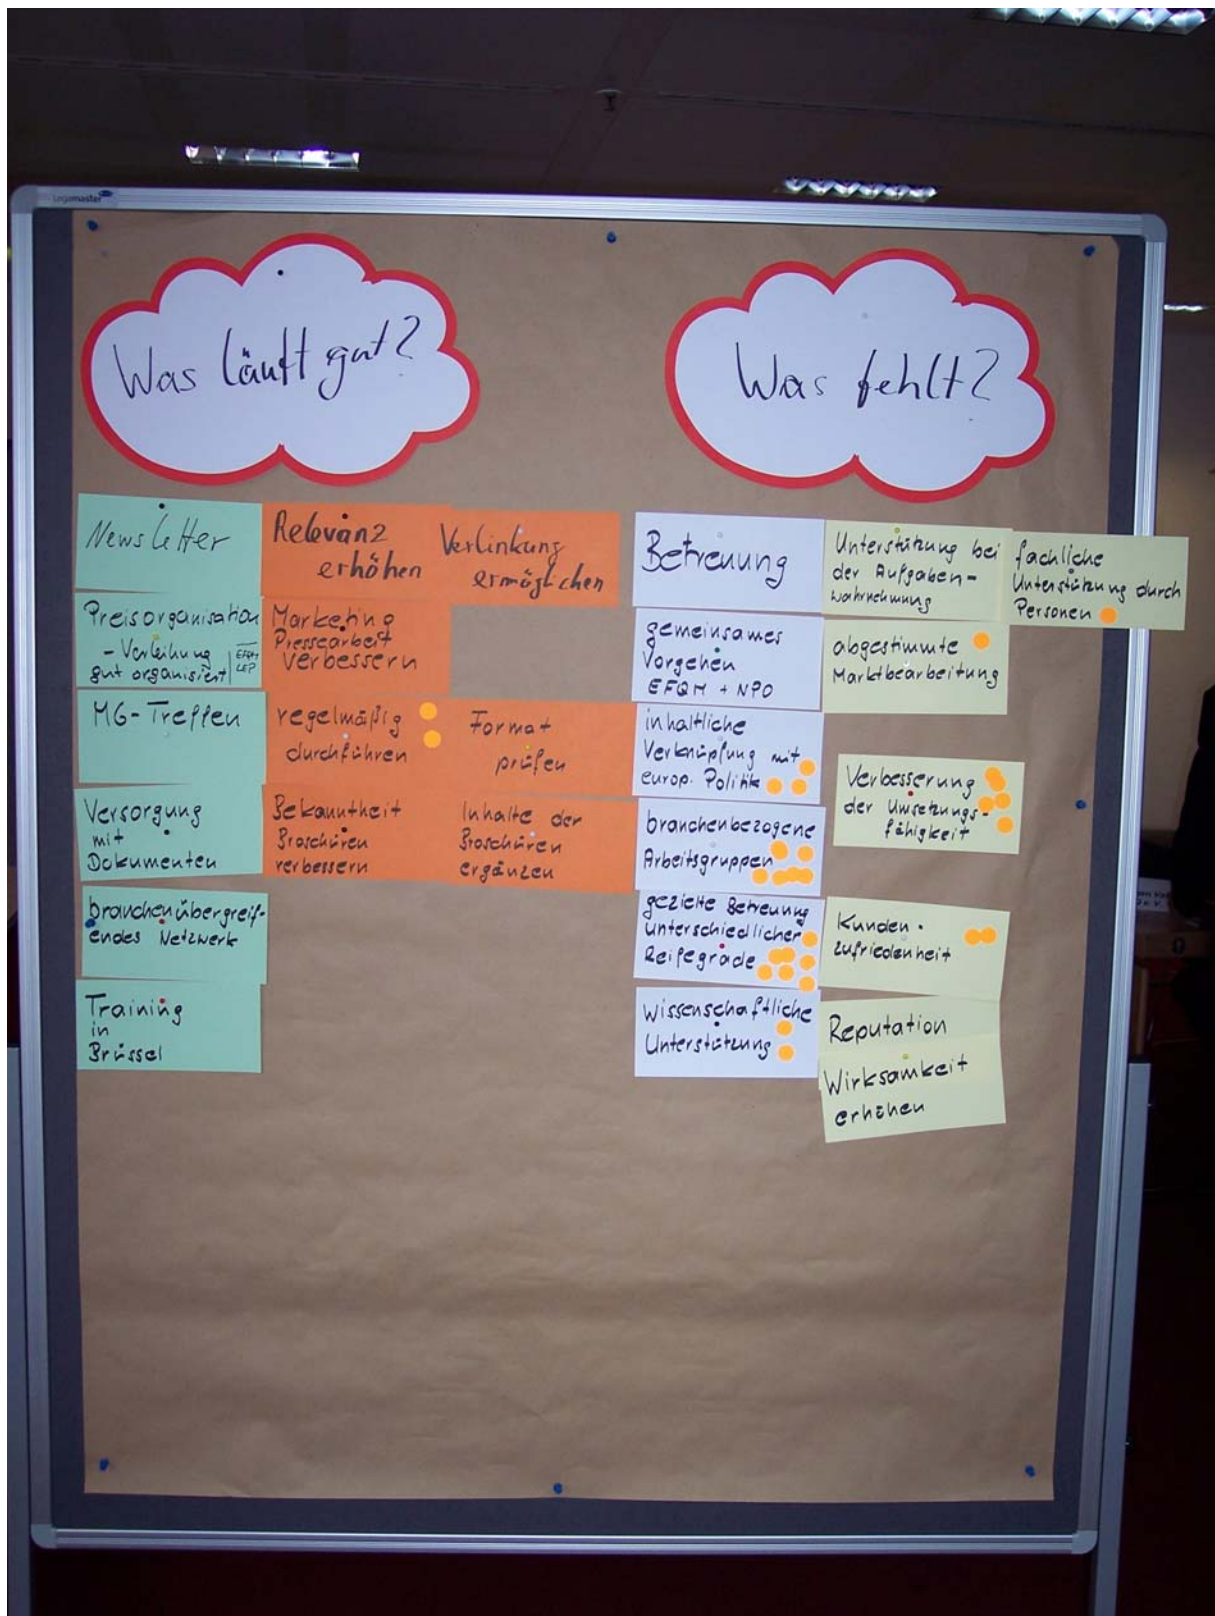 Legamaster
Was läuft gut?
Was fehlt?
Newsletter
Relevanz
erhöhen
Verlinkung
ermöglichen
Preisorganisation
- Verleihung
gut organisiert
EFQM
LEP
Marketing
Pressearbeit
verbessern
MG-Treffen
regelmäßig
durchführen
Format
prüfen
Versorgung
mit
Dokumenten
Bekanntheit
Broschüren
verbessern
Inhalte der
Broschüren
ergänzen
branchenübergreif-
endes Netzwerk
Training
in
Brüssel
Betreuung
Unterstützung bei
der Aufgaben-
wahrnehmung
fachliche
Unterstützung durch
Personen
gemeinsames
Vorgehen
EFQM + NPO
abgestimmte
Marktbearbeitung
inhaltliche
Verknüpfung mit
europ. Politik
Verbesserung
der Umsetzungs-
fähigkeit
branchenbezogene
Arbeitsgruppen
gezielte Betreuung
unterschiedlicher
Reifegrade
Kunden-
zufriedenheit
Wissenschaftliche
Unterstützung
Reputation
Wirksamkeit
erhöhen